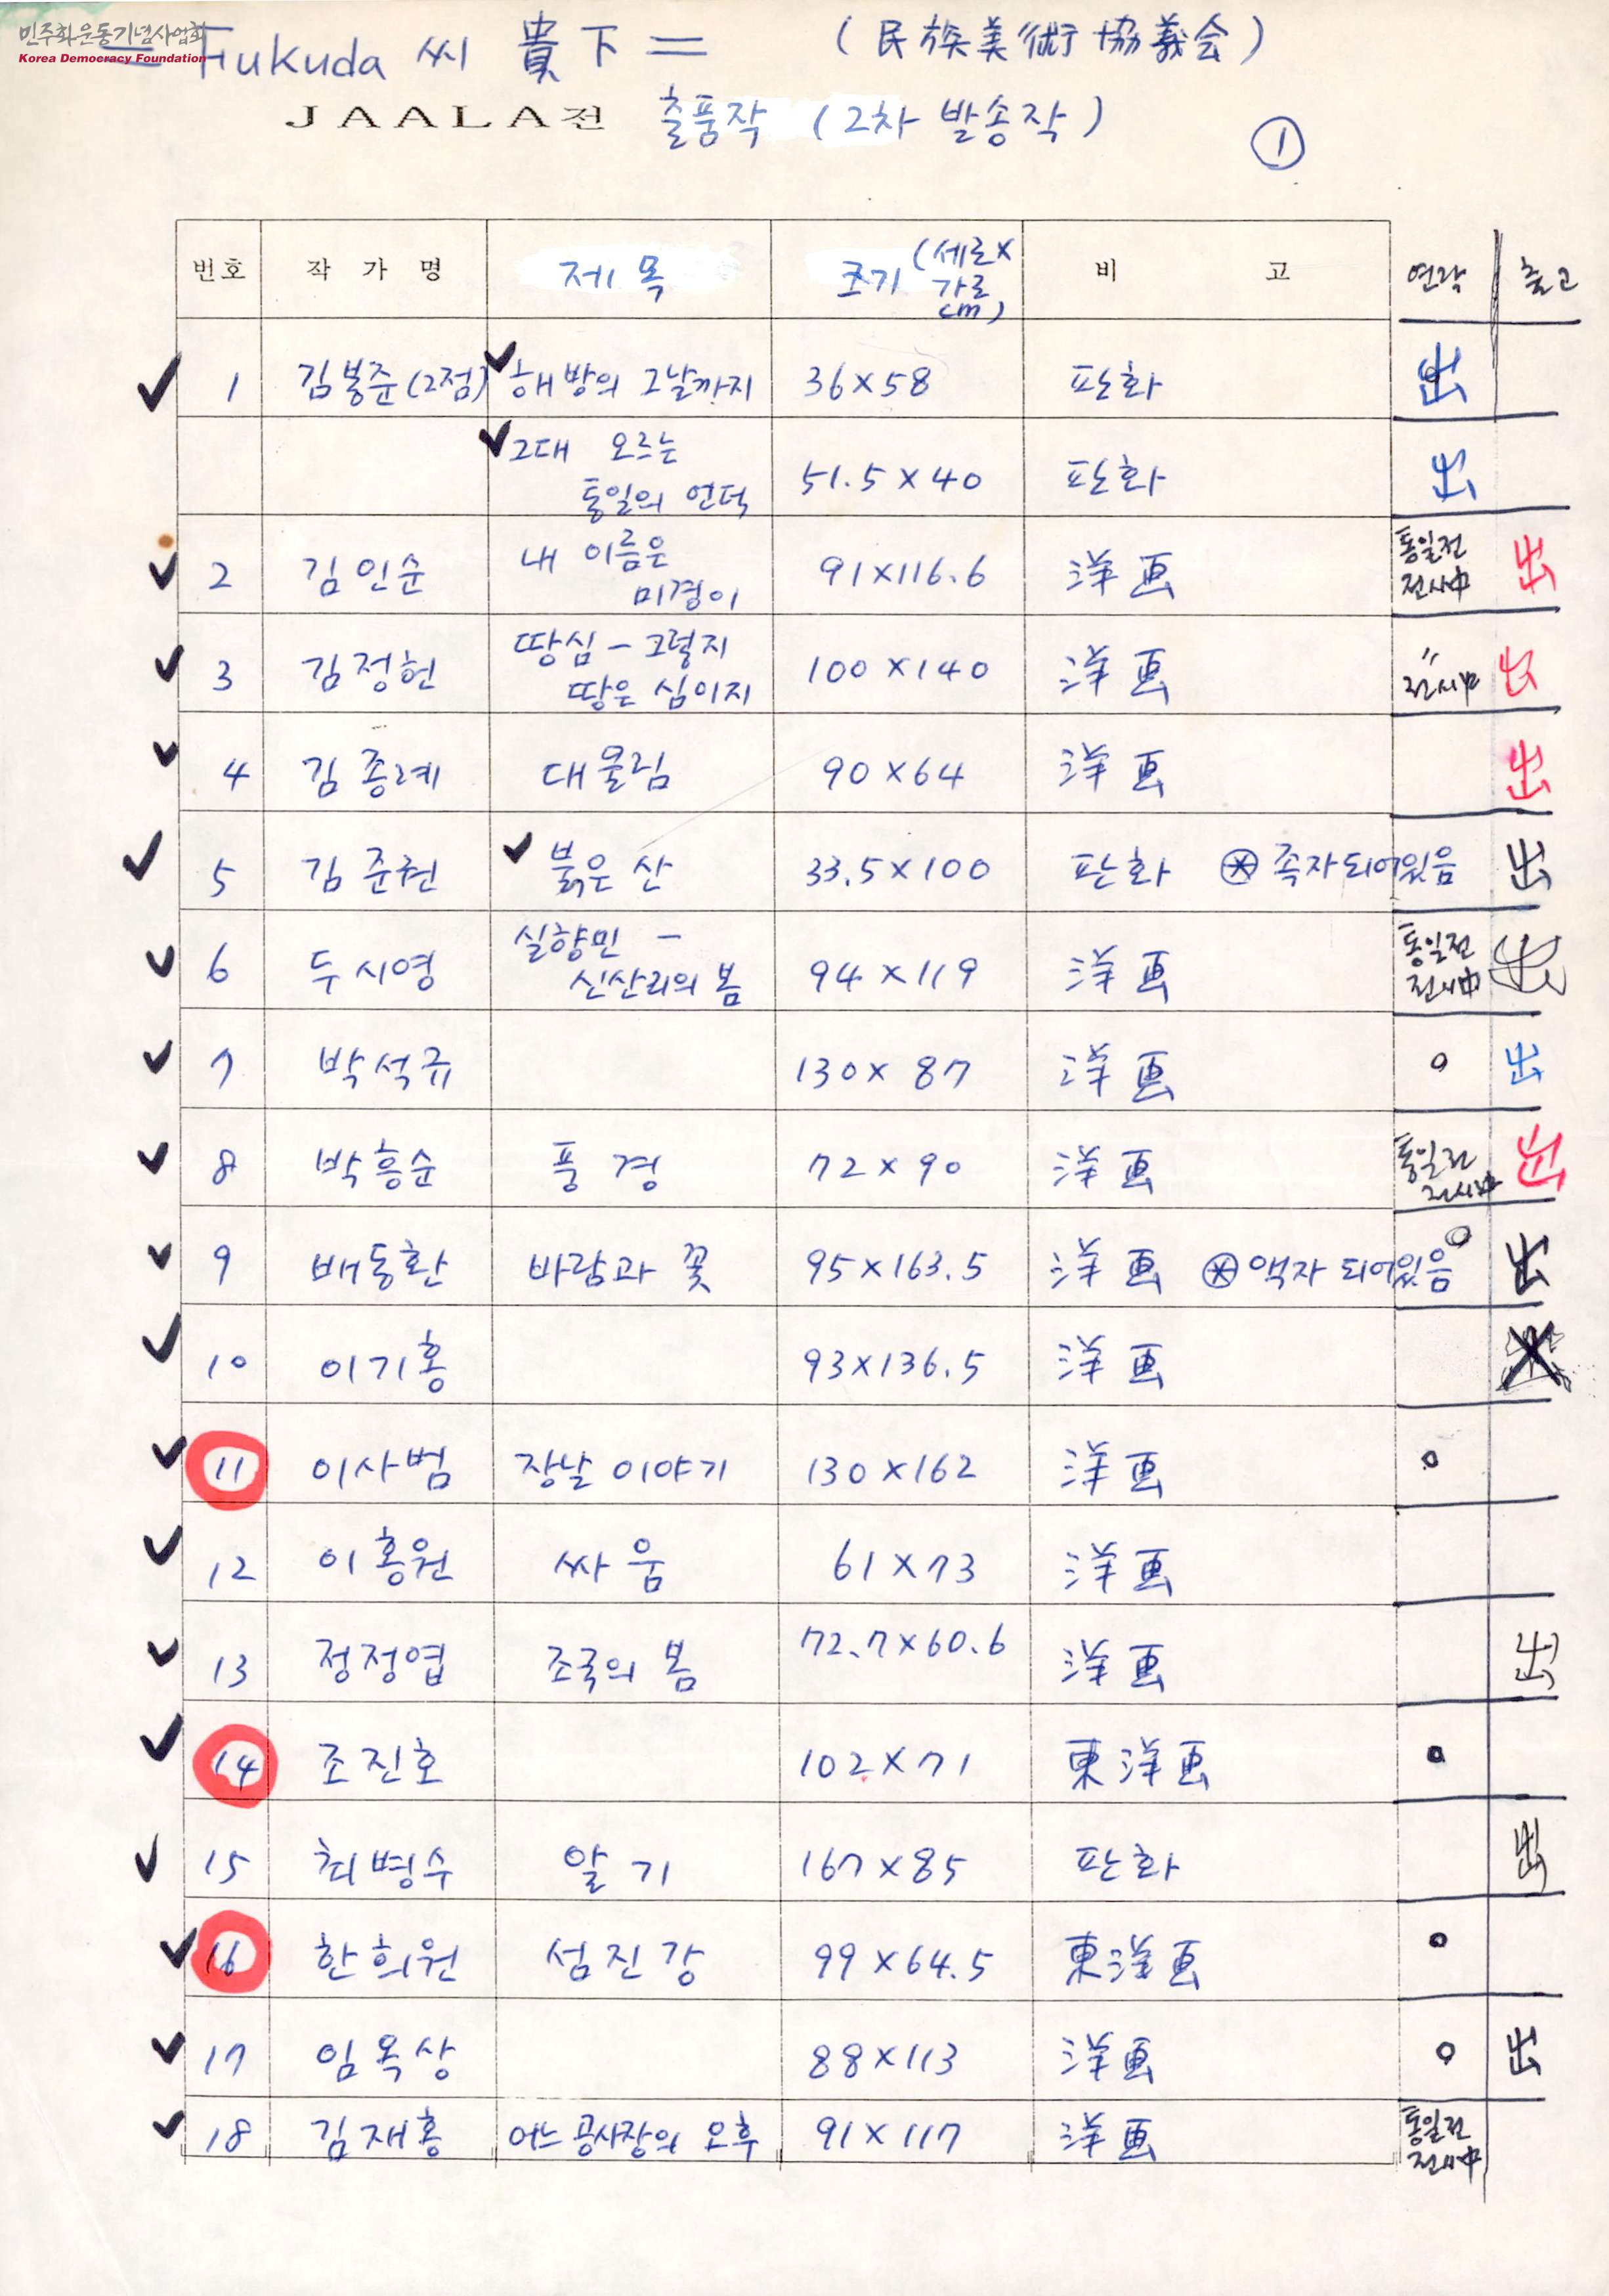 민주화운동기념사업회
Korea Democracy Foundation
= Fukuda 씨 貴下 = (民族美術協義会)
JAALA전 출품작 (2차 발송작)
①
번호 작가명 제목 크기 (세로× 가로 cm) 비고 연락 출고
1 김봉준(2점) 해방의 그날까지 36×58 판화 出
그대 오르는
통일의 언덕 51.5×40 판화 出
2 김인순 내 이름은
미경이 91×116.6 洋画 통일전
전시中 出
3 김정헌 땅심-그렇지
땅은 심이지 100×140 洋画 〃
전시中 出
4 김종례 대물림 90×64 洋画 出
5 김준권 붉은 산 33.5×100 판화 ⊛ 족자되어있음 出
6 두시영 실향민 -
신산리의 봄 94×119 洋画 통일전
전시中 出
7 박석규 130×87 洋画 ○ 出
8 박흥순 풍경 72×90 洋画 통일전
전시中 出
9 배동환 바람과 꽃 95×163.5 洋画 ⊛ 액자 되어있음 ○ 出
10 이기홍 93×136.5 洋画
11 이사범 장날 이야기 130×162 洋画 ○
12 이홍원 싸움 61×73 洋画
13 정정엽 조국의 봄 72.7×60.6 洋画 出
14 조진호 102×71 東洋画 ○
15 최병수 알기 167×85 판화 出
16 한희원 섬진강 99×64.5 東洋画 ○
17 임옥상 88×113 洋画 ○ 出
18 김재홍 어느 공사장의 오후 91×117 洋画 통일전
전시中